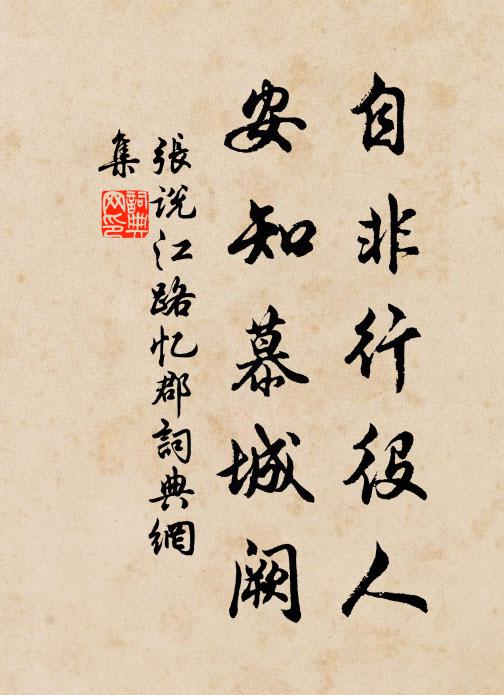 自非行役人
安知慕城阙
張说江路忆郡詞典網
集
詞典
网印